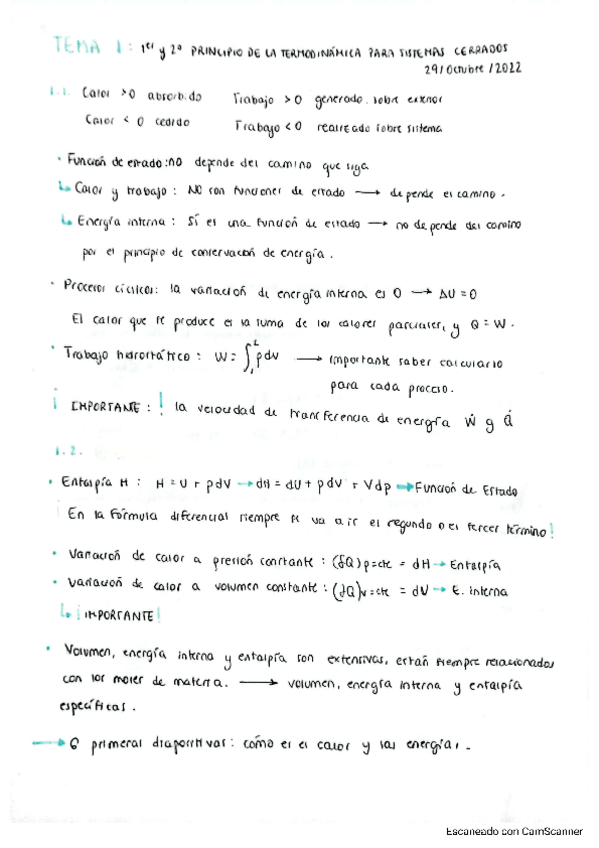 TEMA 1: 1er y 2º PRINCIPIO DE LA TERMODINÁMICA PARA SISTEMAS CERRADOS
29/Octubre/2022
1.1. Calor >0 absorbido Trabajo >0 generado sobre exterior
Calor < 0 cedido Trabajo <0 realizado sobre sistema
· Función de estado: no depende del camino que siga
↳ Calor y trabajo: NO son funciones de estado → depende el camino.
↳ Energía interna: Sí es una función de estado → no depende del camino
por el principio de conservación de energía.
· Procesos cíclicos: la variación de energía interna es 0 → ΔU = 0
El calor que se produce es la suma de los calores parciales, y Q = W.
· Trabajo hidrostático: W = ∫₁² pdv → importante saber calcularlo
para cada proceso.
¡ IMPORTANTE: ! la velocidad de transferencia de energía Ẇ y Q̇
1.2.
· Entalpía H: H = U + pdV → dH = dU + pdV + Vdp → Función de Estado
En la fórmula diferencial siempre se va a ir el segundo o el tercer término!
· Variación de calor a presión constante: (δQ)p=cte = dH → Entalpía
· Variación de calor a volumen constante: (δQ)v=cte = dV → E. interna
↳ ¡IMPORTANTE!
· Volumen, energía interna y entalpía son extensivas, están siempre relacionados
con los moles de materia. → volumen, energía interna y entalpía
específicas.
→ 6 primeras diapositivas: cómo es el calor y las energías.
Escaneado con CamScanner